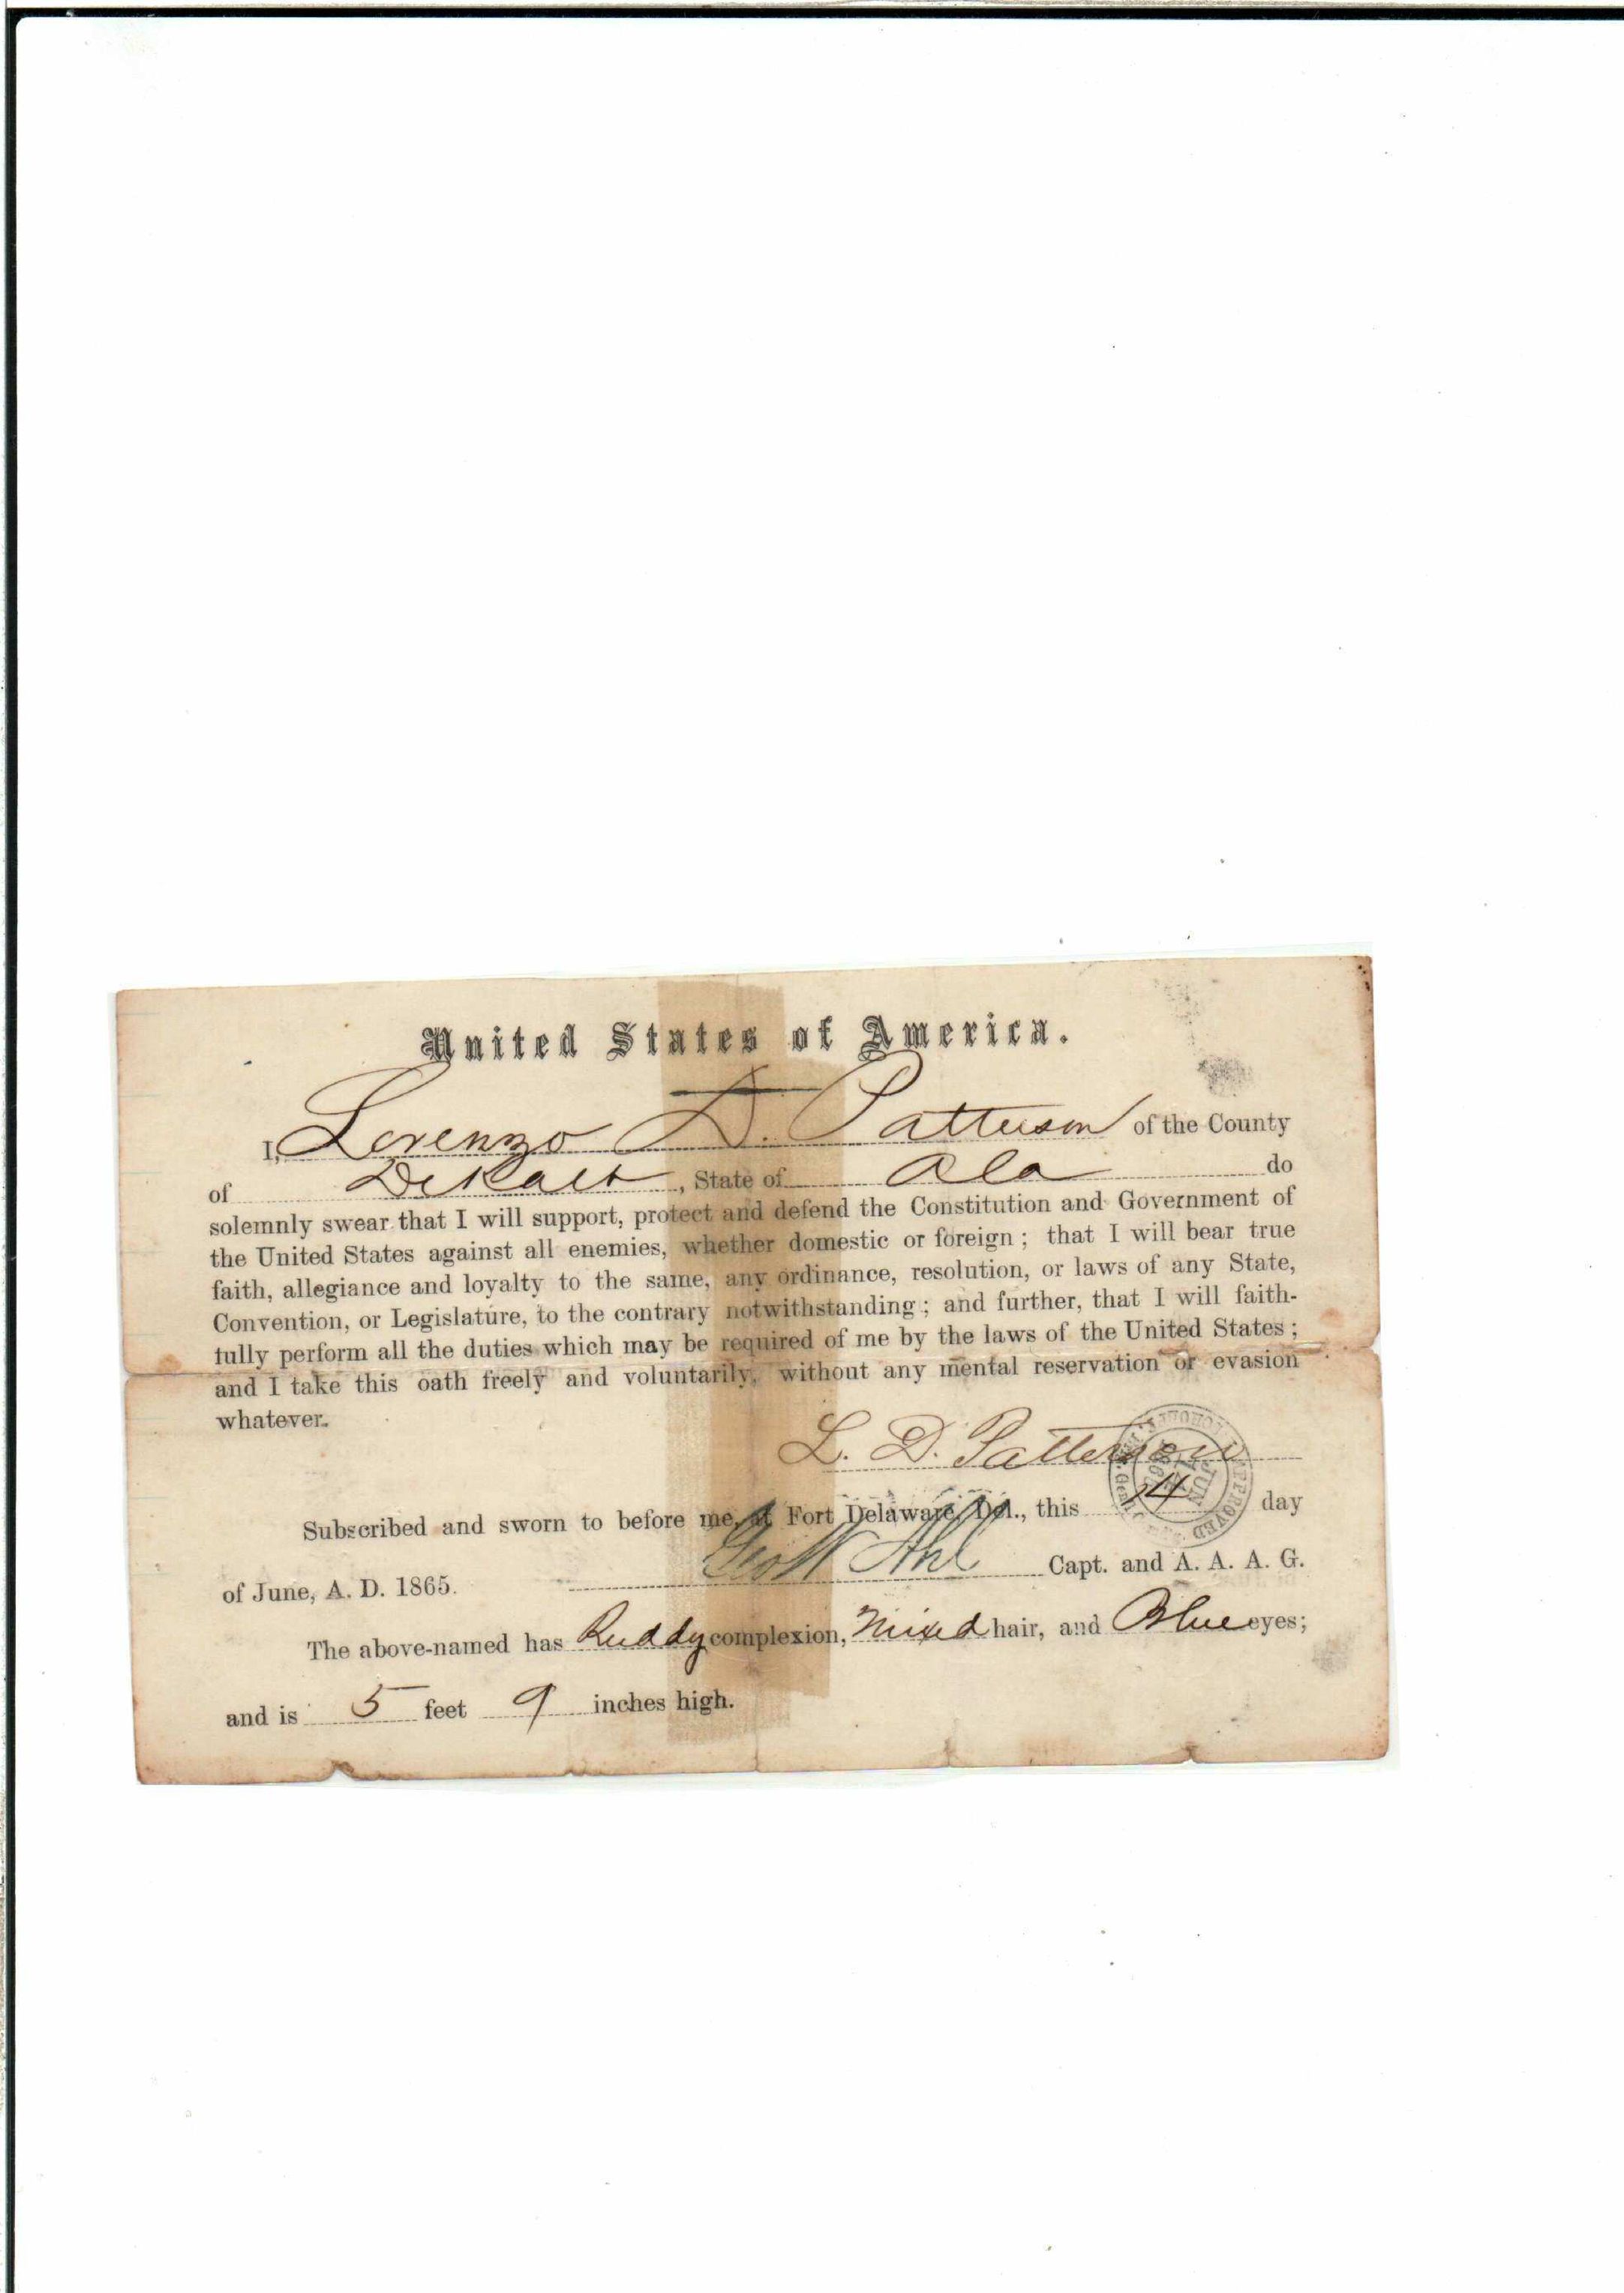 United States of America.
I, Lorenzo D. Patterson of the County
of DeKalb, State of Ala do
solemnly swear that I will support, protect and defend the Constitution and Government of
the United States against all enemies, whether domestic or foreign; that I will bear true
faith, allegiance and loyalty to the same, any ordinance, resolution, or laws of any State,
Convention, or Legislature, to the contrary notwithstanding; and further, that I will faith-
fully perform all the duties which may be required of me by the laws of the United States;
and I take this oath freely and voluntarily, without any mental reservation or evasion
whatever.
L. D. Patterson
APPROVED
JUN
Subscribed and sworn to before me, at Fort Delaware, Del., this 14 day
of June, A. D. 1865. Capt. and A. A. A. G.
The above-named has Ruddy complexion, Mixed hair, and Blue eyes;
and is 5 feet 9 inches high.